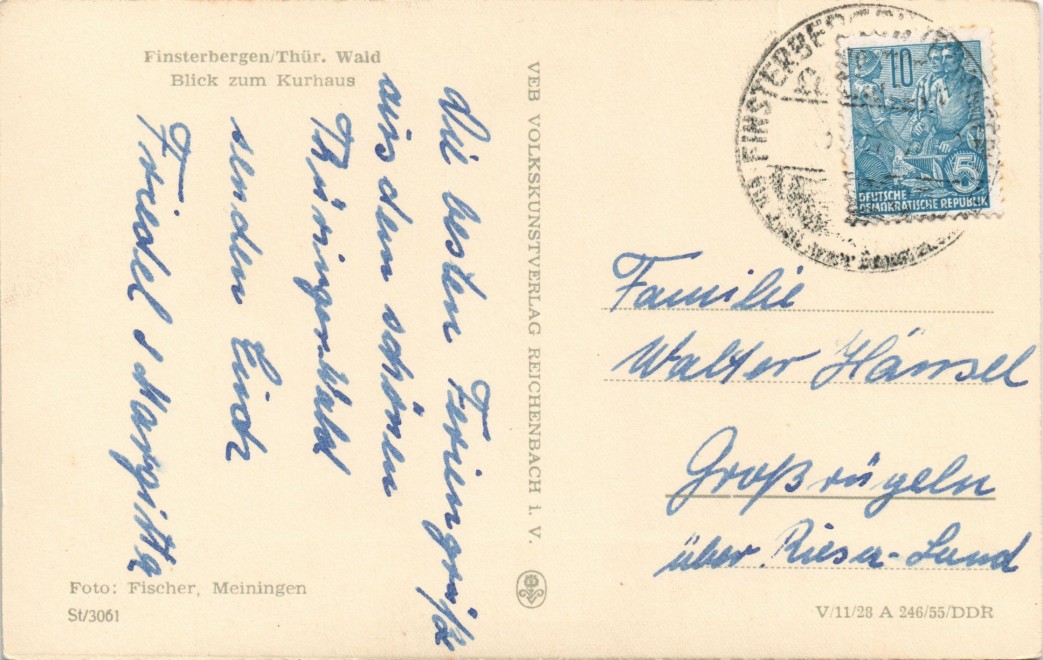 Finsterbergen/Thür. Wald
Blick zum Kurhaus
Die besten Feriengrüße
aus dem schönen
Thüringerwald
senden Euch
Friedel & Margitta
Foto: Fischer, Meiningen
St/3061
VEB VOLKSKUNSTVERLAG REICHENBACH i. V.
FINSTERBERGEN
10
5
DEUTSCHE
DEMOKRATISCHE REPUBLIK
Familie
Walter Hänsel
Großrügeln
über Riesa-Land
V/11/28 A 246/55/DDR